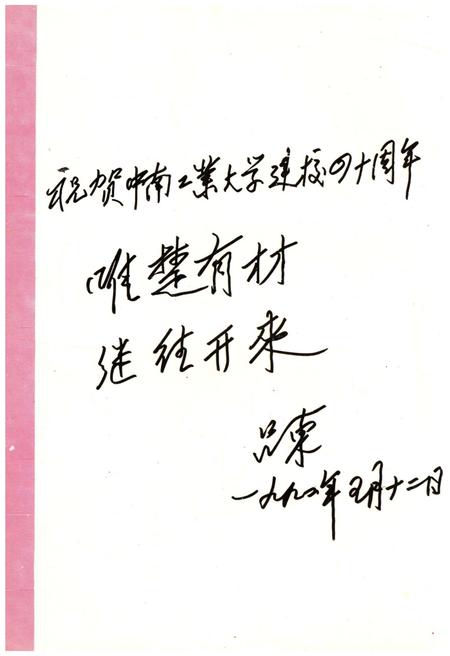 祝贺中南工業大学建校四十周年
唯楚有材
继往开来
吕東
一九九二年五月十二日